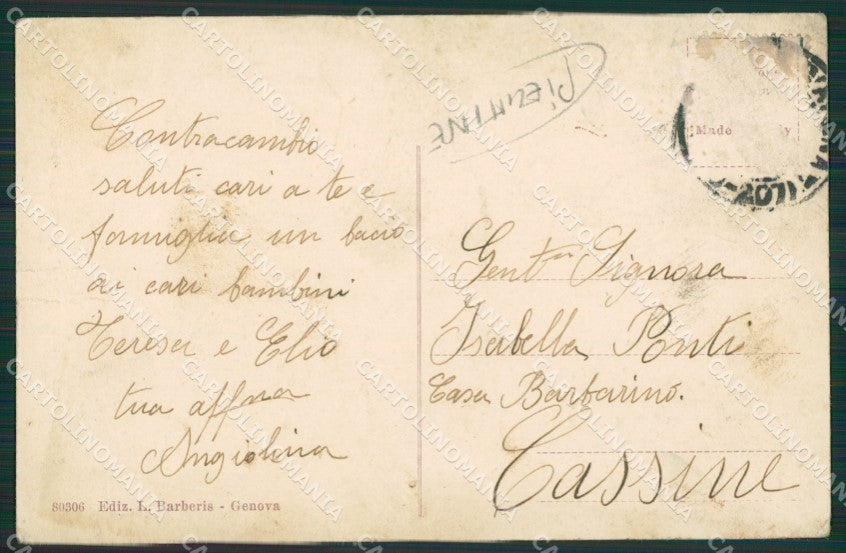 Contracambio
saluti cari a te e
famiglia un bacio
ai cari bambini
Teresa e Elio
tua affma
Angiolina
80306 Ediz. L. Barberis - Genova
Made y
Gentma Signora
Isabella Ponti
Casa Barbarino.
Cassine
CARTOLINOMANIA